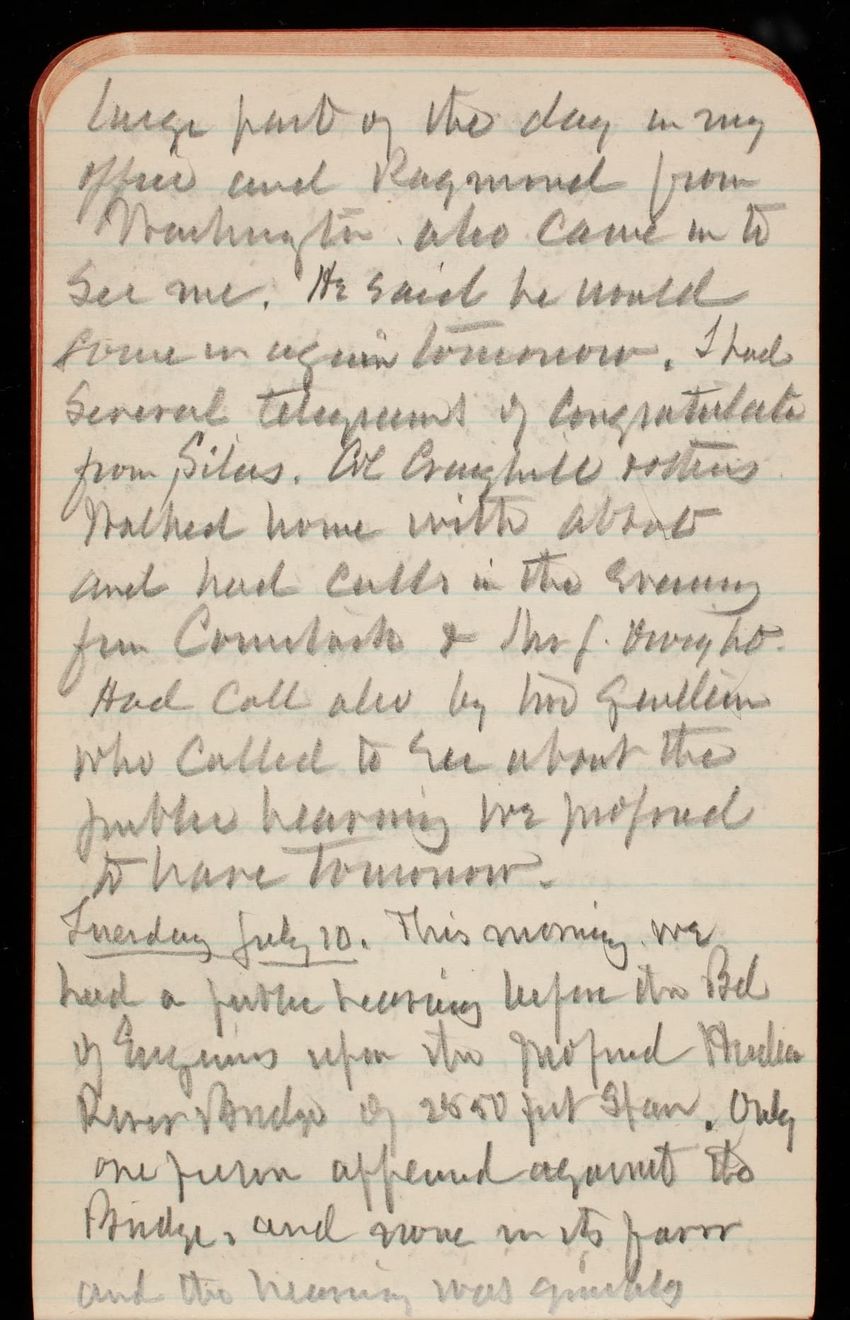 large part of the day in my
office and Raymond from
Washington also came in to
see me. He said he would
come in again tomorrow. I had
several telegrams of congratulate
from Silas. Col Craighill
Walked home with Abbot
and had calls in the evening
from Comstock & Mrs J. Dwight.
Had call also by two gentlem
who called to see about the
public hearing we proposed
to have tomorrow.
Tuesday July 10. This morning we
had a public hearing before the Bd
of Engineers upon the proposed Hudson
River Bridge of feet span. Only
one person appeared against the
Bridge, and none in its favor
and the hearing was quickly